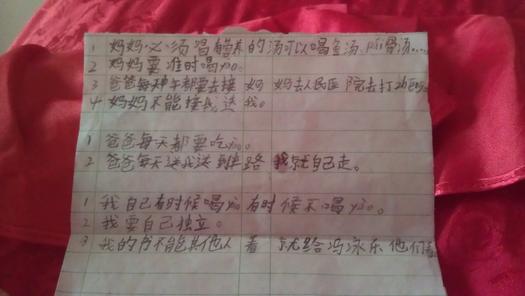 1 妈妈必须喝有营养的汤可以喝鱼汤、排骨汤……
2 妈妈要准时喝yao。
3 爸爸每天中午都要去接妈妈去人民医院去打
4 妈妈不能接我送我。
1 爸爸每天都要吃yao。
2 爸爸每天送我送到半路我就自己走。
1 我自己有时候喝yao有时候不喝yao。
2 我要自己独立。
3 我的书不能其他人看 就给冯泳乐他们看